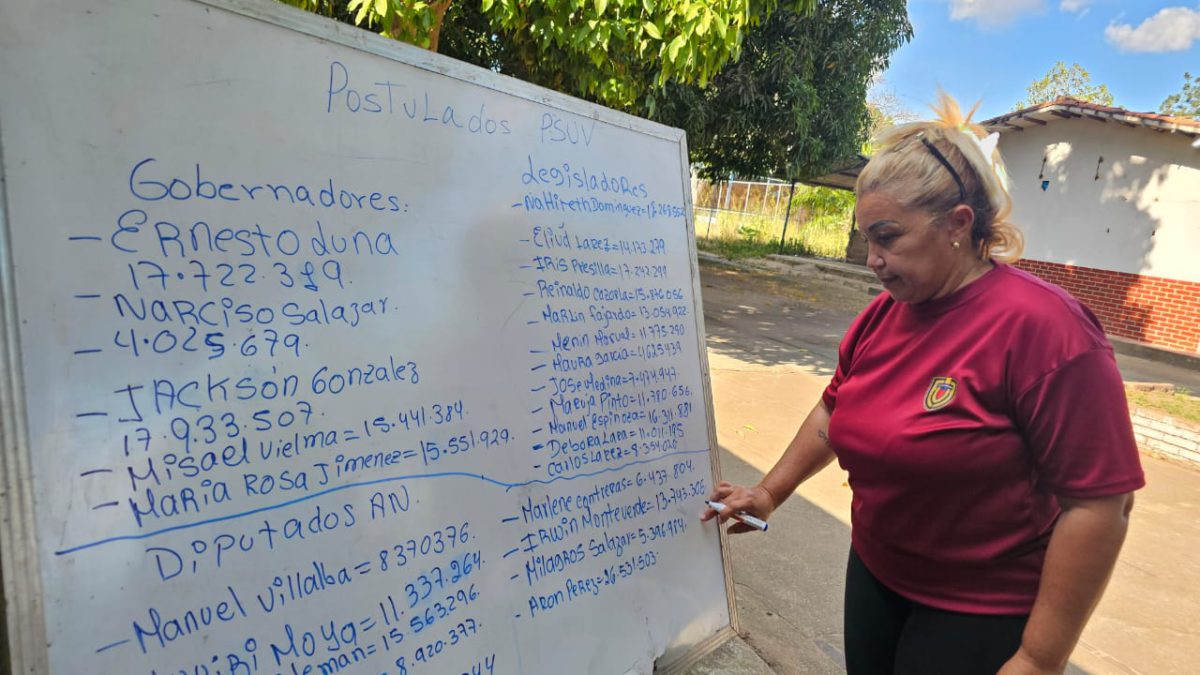 Postulados PSUV
Gobernadores:
- Ernesto Luna
17.722.319.
- Narciso Salazar.
- 4.025.679.
- Jackson Gonzalez
17.933.507.
- Misael Vielma = 15.441.384.
- Maria Rosa Jimenez = 15.551.929.
Diputados AN.
- Manuel Villalba = 8370376.
Moya = 11.337.264.
= 15.563.296.
8.920.377.
44
Legisladores
- Nahireth Dominguez =
- Eliud Larez = 14.173.279
- Iris Presilla = 17.242.299
- Reinaldo Cazorla = 15.876.056
- Marlin Fajardo = 13.054.922
- Menin = 11.775.290
- Maura Garcia =
- Jose Medina = 7.474.947.
- Maruja Pinto = 11.780.656.
- Manuel Espinoza = 16.311.881
- Debora Lara = 11.011.195
- Carlos Larez = 8.354.020
- Marlene Contreras = 6.437.804.
- Irwin Monteverde = 13.743.306.
- Milagros Salazar = 5.396.984.
- Aron Perez = 26.531.503.